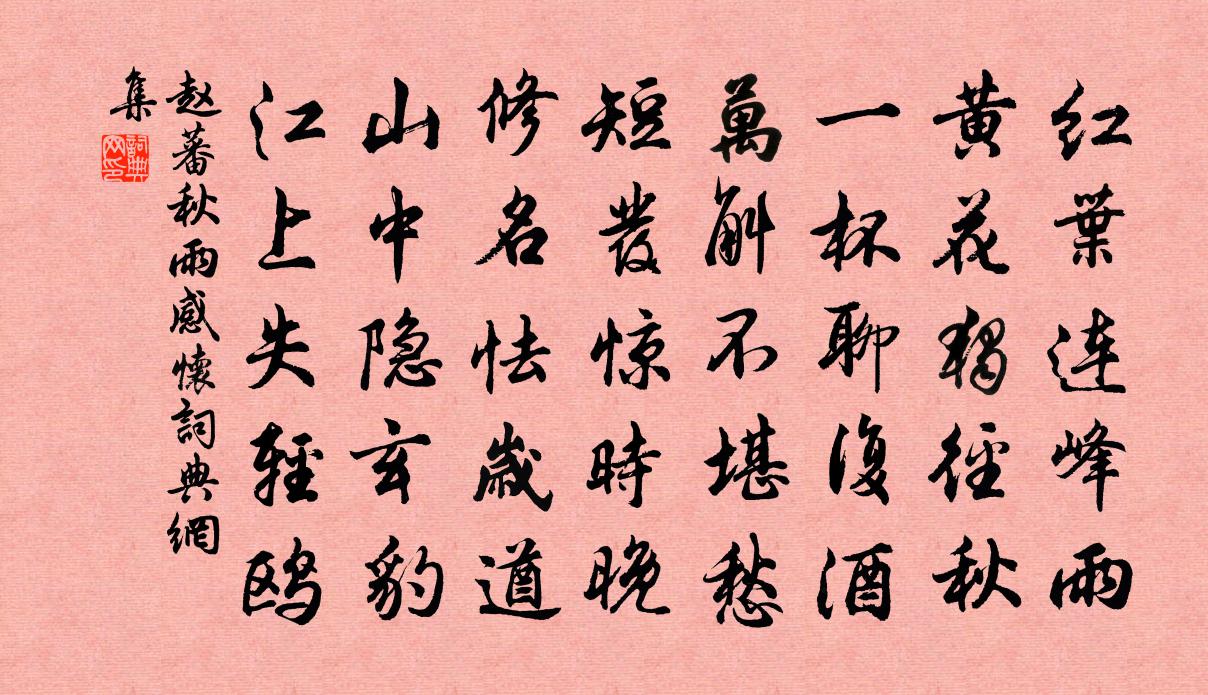 红葉连峰雨
黄花獨径秋
一杯聊復酒
萬斛不堪愁
短發惊時晚
修名怯歲遒
山中隐玄豹
江上失輕鸥
赵蕃秋雨感懷詞典網
集
詞典網印